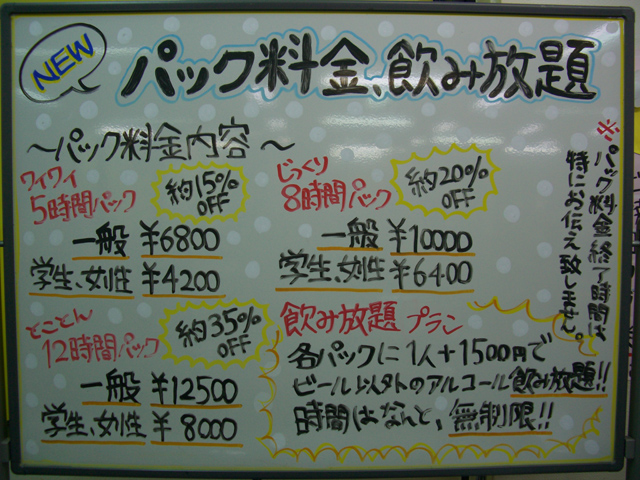 NEW
パック料金、飲み放題
～パック料金内容～
ワイワイ
5時間パック
約15%
OFF
一般 ¥6800
学生、女性 ¥4200
じっくり
8時間パック
約20%
OFF
一般 ¥10000
学生、女性 ¥6400
とことん
12時間パック
約35%
OFF
一般 ¥12500
学生、女性 ¥8000
飲み放題プラン
各パックに1人+1500円で
ビール以外のアルコール飲み放題!!
時間はなんと、無制限!!
※パック料金終了時間は
特にお伝え致しません。